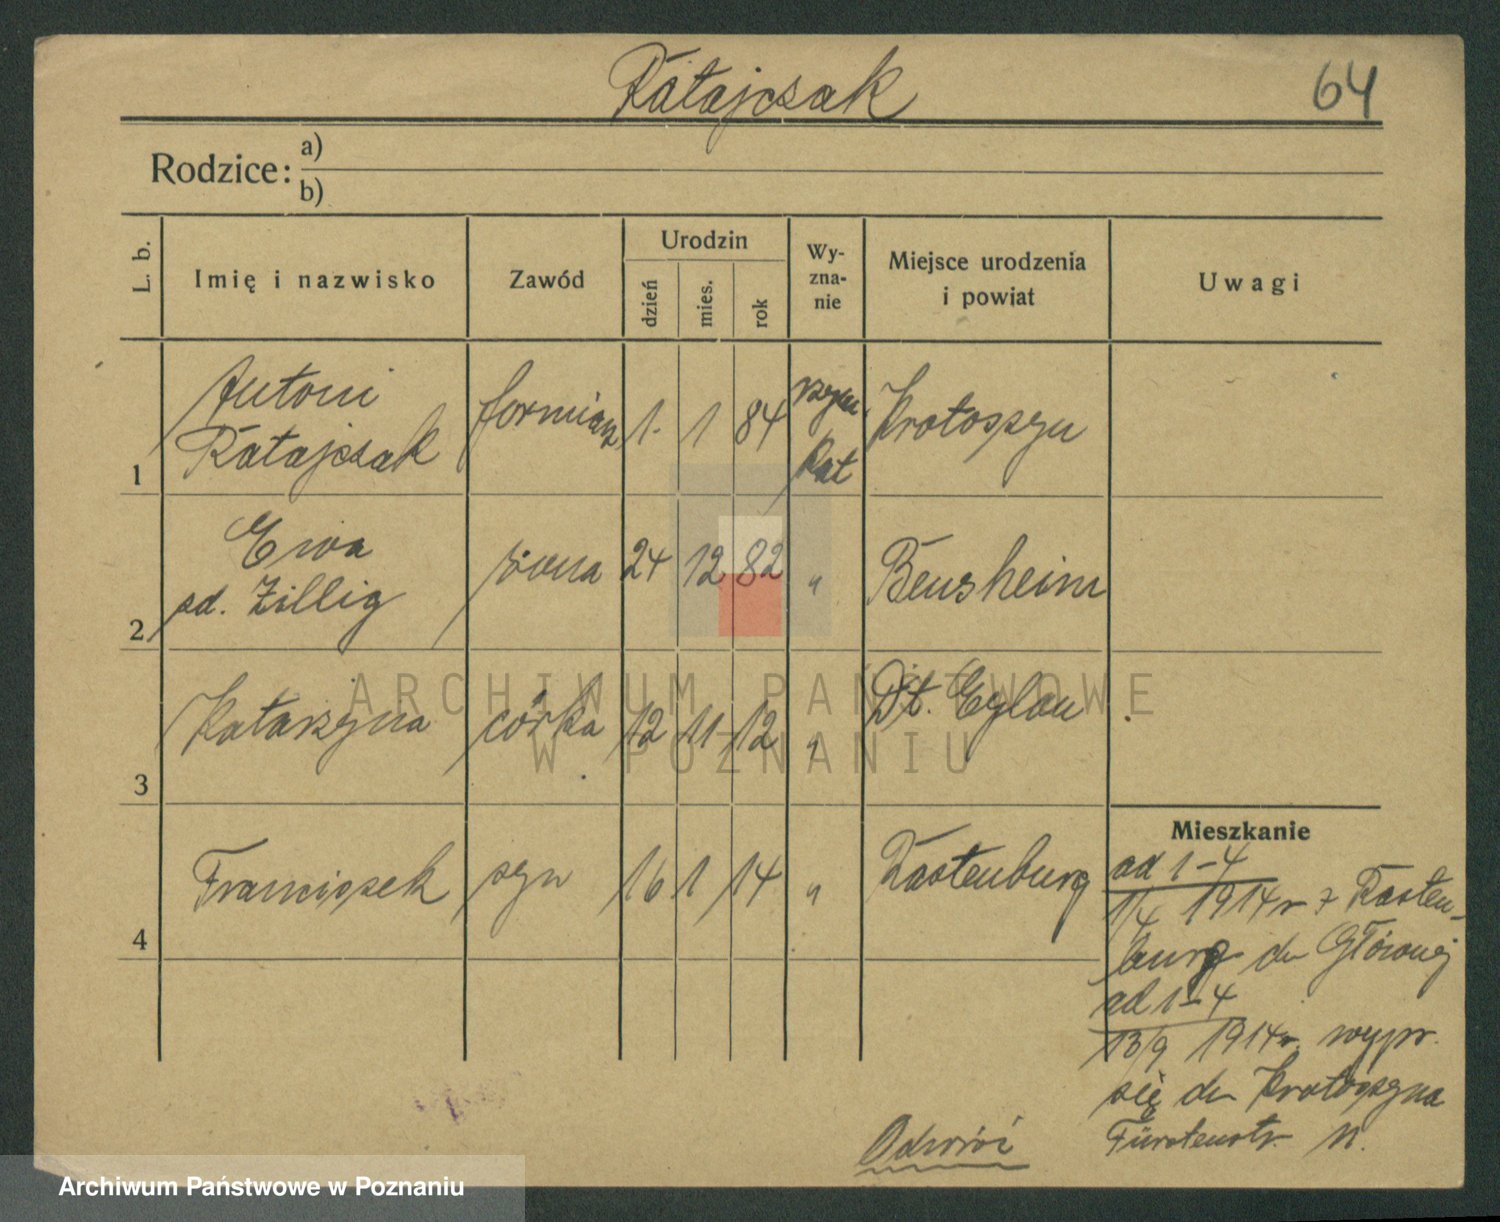 Ratajczak
64
Rodzice:
a)
b)
L. b.
Imię i nazwisko
Zawód
Urodzin
dzień
mies.
rok
Wy-
zna-
nie
Miejsce urodzenia
i powiat
Uwagi
1
Antoni
Ratajczak
formiarz
1. 1 84
rzym.
kat
Krotoszyn
2
Ewa
zd. Zillig
żona
24 12 82
"
Bensheim
3
Katarzyna
córka
12 11 12
"
Dt. Eylau
4
Franciszek
syn
16 1 14
"
Rastenburg
Mieszkanie
ad 1-4
1/4 1914 r z Rasten-
burg do Głównej
ad 1-4
13/9 1914 r. wypr.
się do Krotoszyna
Fürstenstr. 11.
Odwróć
ARCHIWUM PAŃSTWOWE
W POZNANIU
Archiwum Państwowe w Poznaniu